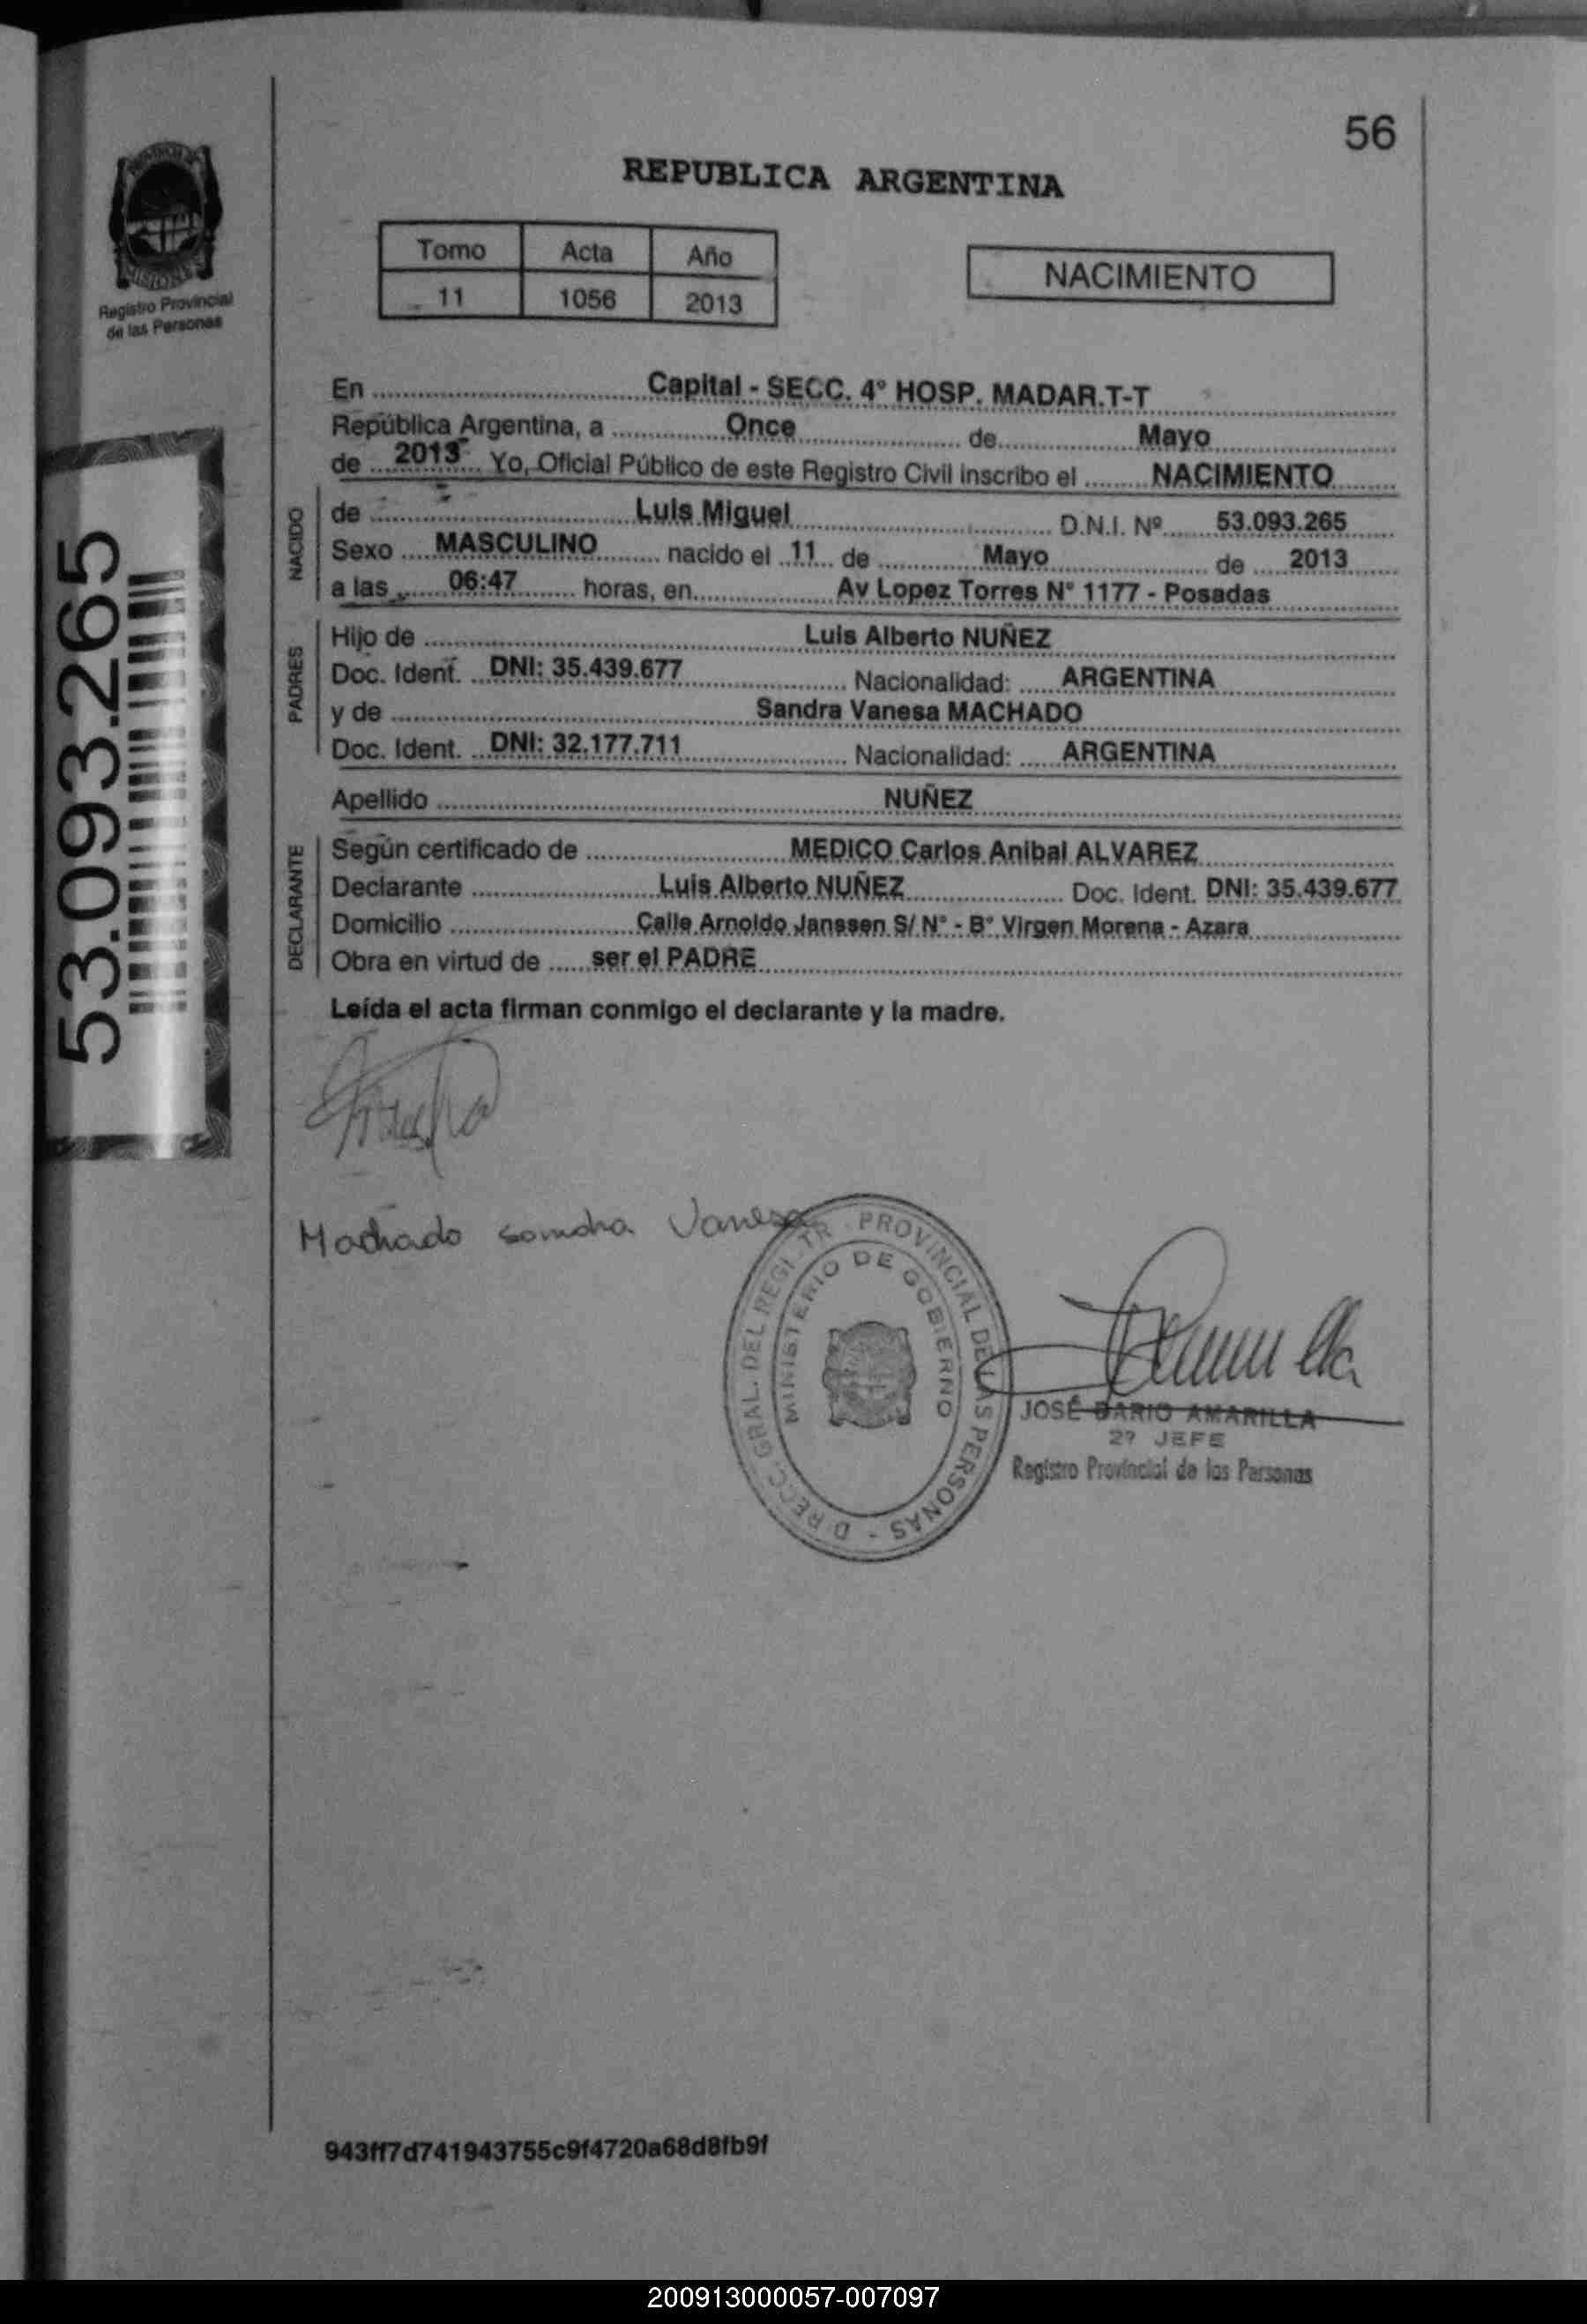 56
REPUBLICA ARGENTINA
PROVINCIA DE
MISIONES
Registro Provincial
de las Personas
Tomo Acta Año
11 1056 2013
NACIMIENTO
En Capital - SECC. 4° HOSP. MADAR.T-T
República Argentina, a Once de Mayo
de 2013 Yo, Oficial Público de este Registro Civil inscribo el NACIMIENTO
NACIDO
de Luis Miguel D.N.I. Nº 53.093.265
Sexo MASCULINO nacido el 11 de Mayo de 2013
a las 06:47 horas, en Av Lopez Torres N° 1177 - Posadas
PADRES
Hijo de Luis Alberto NUÑEZ
Doc. Ident. DNI: 35.439.677 Nacionalidad: ARGENTINA
y de Sandra Vanesa MACHADO
Doc. Ident. DNI: 32.177.711 Nacionalidad: ARGENTINA
Apellido NUÑEZ
DECLARANTE
Según certificado de MEDICO Carlos Anibal ALVAREZ
Declarante Luis Alberto NUÑEZ Doc. Ident. DNI: 35.439.677
Domicilio Calle Arnoldo Janssen S/ N° - B° Virgen Morena - Azara
Obra en virtud de ser el PADRE
Leída el acta firman conmigo el declarante y la madre.
53.093.265
Machado sandra Vanesa
DIRECC. GRAL. DEL REGISTR. PROVINCIAL DE LAS PERSONAS -
MINISTERIO DE GOBIERNO
JOSÉ DARIO AMARILLA
2º JEFE
Registro Provincial de las Personas
943ff7d741943755c9f4720a68d8fb9f
200913000057-007097